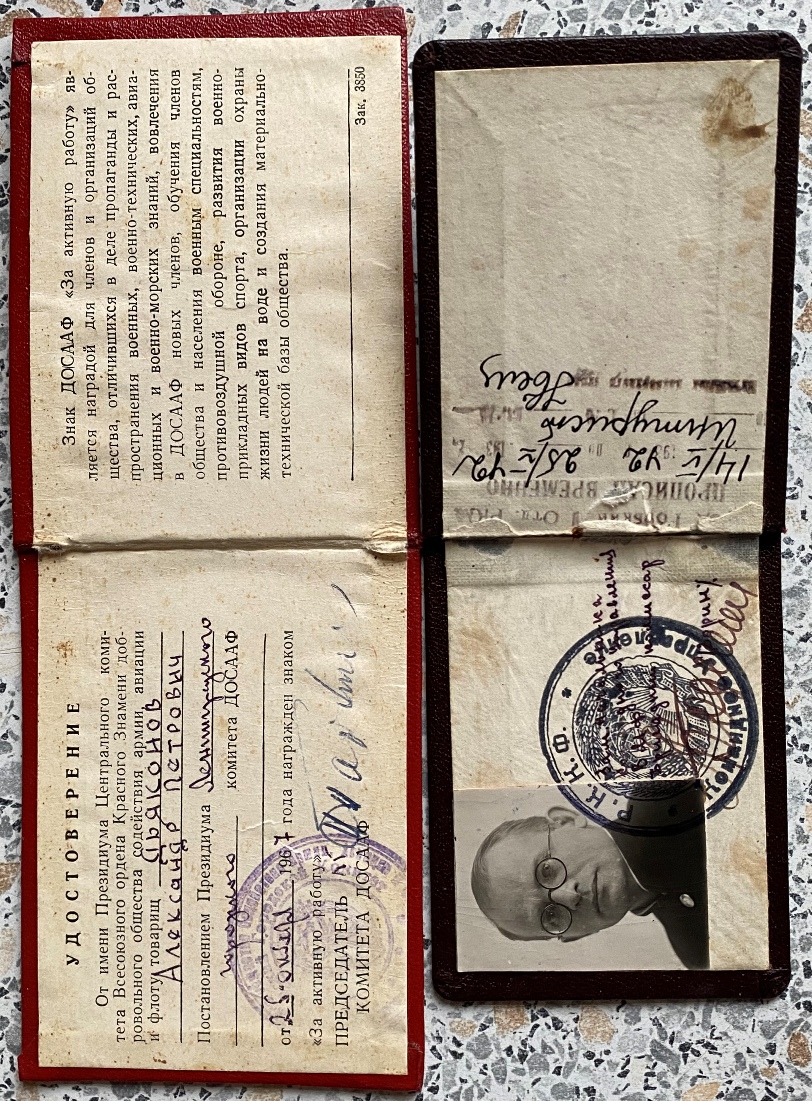 УДОСТОВЕРЕНИЕ
От имени Президиума Центрального коми-
тета Всесоюзного ордена Красного Знамени доб-
ровольного общества содействия армии, авиации
и флоту товарищ Дьяконов
Александр Петрович
Постановлением Президиума Ленинградского
городского комитета ДОСААФ
от 25 1967 года награжден знаком
«За активную работу»
ПРЕДСЕДАТЕЛЬ
КОМИТЕТА ДОСААФ
Знак ДОСААФ «За активную работу» яв-
ляется наградой для членов и организаций об-
щества, отличившихся в деле пропаганды и рас-
пространения военных, военно-технических, авиа-
ционных и военно-морских знаний, вовлечения
в ДОСААФ новых членов, обучения членов
общества и населения военным специальностям,
противовоздушной обороне, развития военно-
прикладных видов спорта, организации охраны
жизни людей на воде и создания материально-
технической базы общества.
Зак. 3850
Отд. Р
ПРОПИСАН ВРЕМЕННО
14/V 42 25/V-42
Интурист
Р. К. К. Ф.
Управление